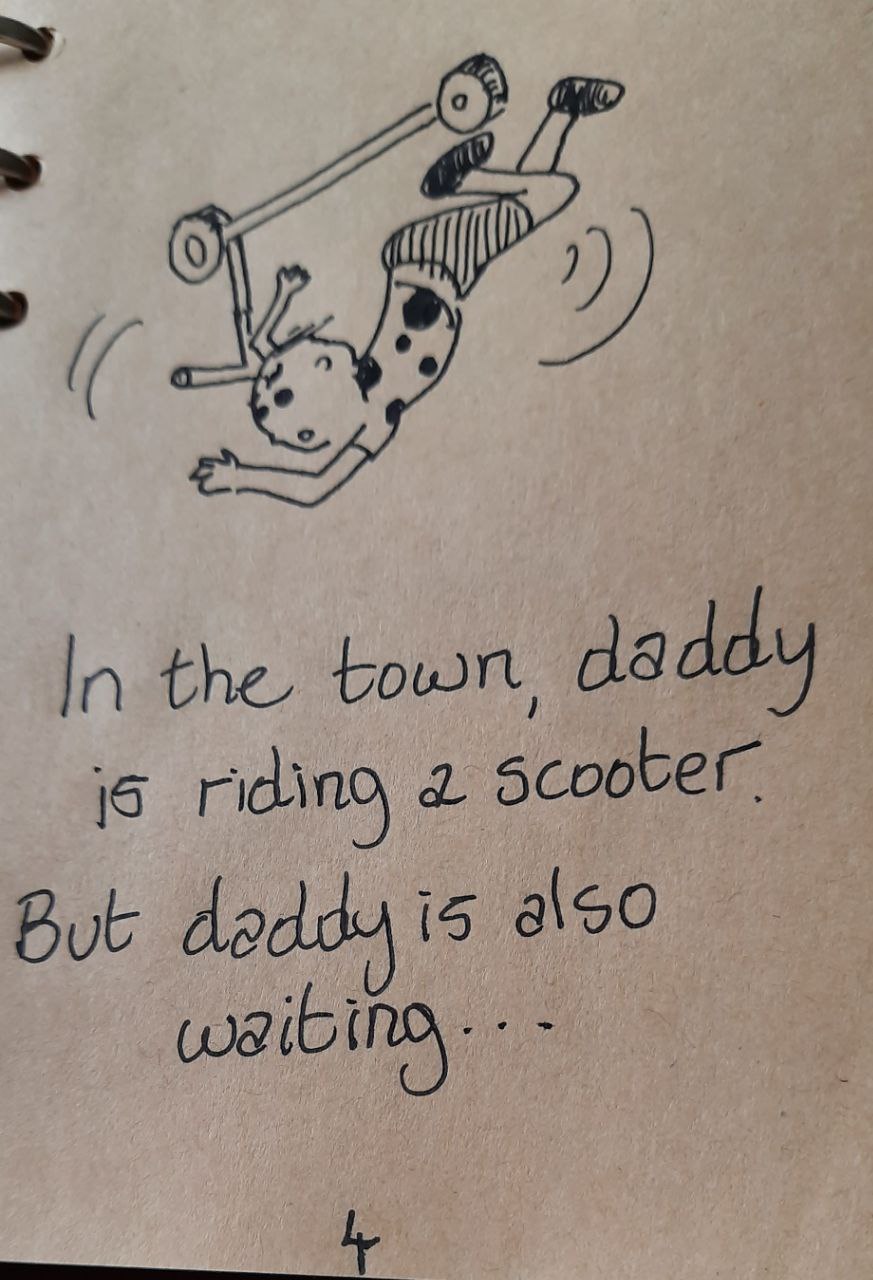 In the town, daddy
is riding a scooter.
But daddy is also
waiting...
4